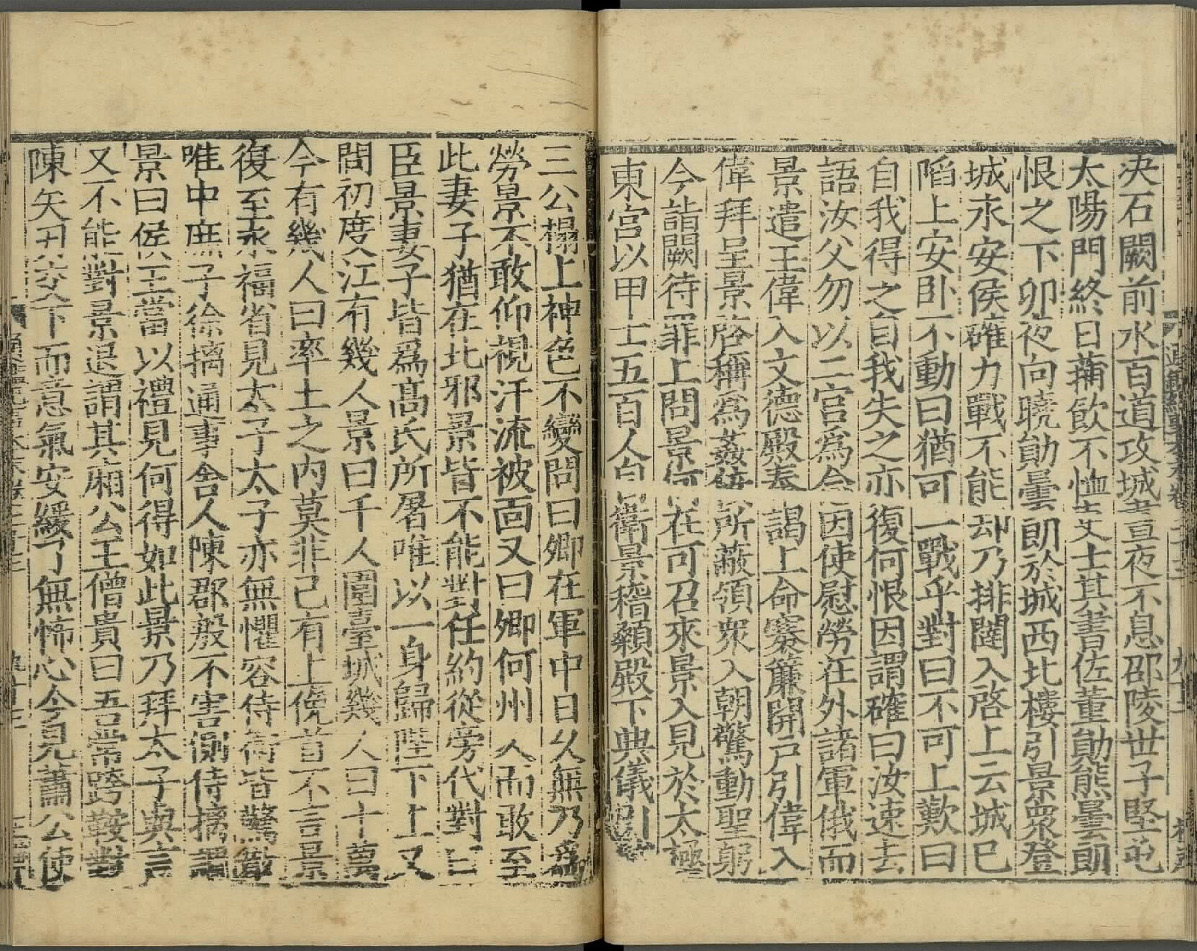 決石闕前水百道攻城晝夜不息邵陵世子堅屯
太陽門終日蒱飲不恤吏士其書佐董勛熊曇朗
恨之下卯夜向曉勛曇朗於城西北樓引景衆登
城永安侯確力戰不能却乃排闥入啓上云城已
䧟上安卧不動曰猶可一戰乎對曰不可上歎曰
自我得之自我失之亦復何恨因謂確曰汝速去
語汝父勿以二宫爲念因使慰勞在外諸軍俄而
景遣王偉入文德殿奉謁上命褰簾開戸引偉入
偉拜呈景啓稱爲姦佞所蔽領衆入朝驚動聖躬
今詣闕待罪上問景何在可召來景入見於太極
東宫以甲士五百人自衛景稽顙殿下典儀引就
三公榻上神色不變問曰卿在軍中日乆無乃爲
勞景不敢仰視汗流被面又曰卿何州人而敢至
此妻子猶在北邪景皆不能對任約從旁代對曰
臣景妻子皆爲髙氏所屠唯以一身歸陛下上又
問初度江有幾人景曰千人圍臺城幾人曰十萬
今有幾人曰率土之内莫非己有上俛首不言景
復至永福省見太子太子亦無懼容侍衛皆驚散
唯中庶子徐摛通事舍人陳郡殷不害側侍摛謂
景曰侯王當以禮見何得如此景乃拜太子與言
又不能對景退謂其廂公王僧貴曰吾常跨鞍對
陳矢刃交下而意氣安緩了無怖心今見蕭公使